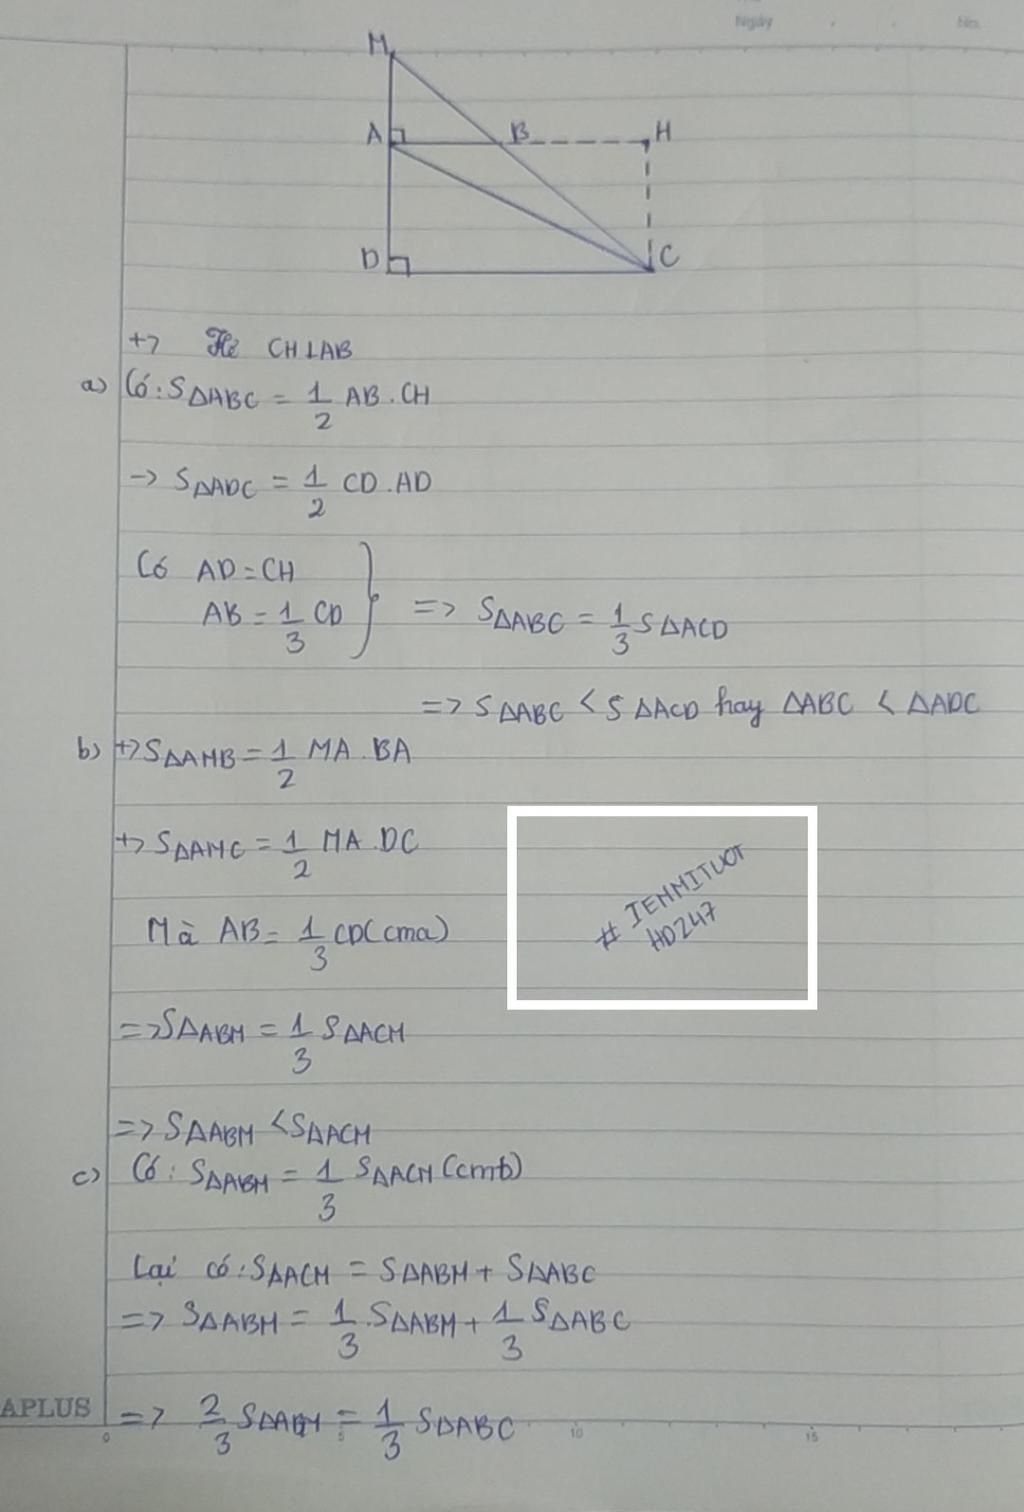 Ngày . . No.
M
A B H
D C
+> Kẻ CH⊥AB
a) Có: SΔABC = 1/2 AB.CH
-> SΔADC = 1/2 CD.AD
Có AD = CH
AB = 1/3 CD } => SΔABC = 1/3 SΔACD
=> SΔABC < SΔACD hay ΔABC < ΔADC
b) +> SΔAMB = 1/2 MA.BA
+> SΔAMC = 1/2 MA.DC
# IEMMITUOT
HD247
Mà AB = 1/3 CD (cma)
=> SΔABM = 1/3 SΔACM
=> SΔABM < SΔACM
c) Có: SΔABM = 1/3 SΔACM (cmb)
Lại có: SΔACM = SΔABM + SΔABC
=> SΔABM = 1/3 .SΔABM + 1/3 SΔABC
APLUS => 2/3 SΔABM = 1/3 SΔABC
0 5 10 15